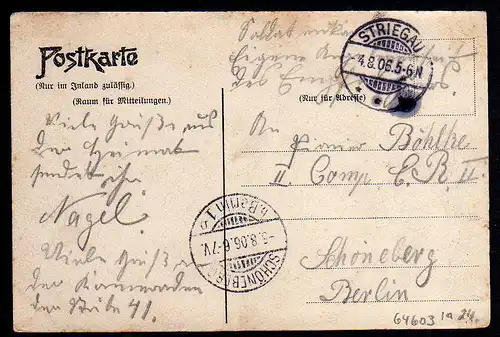 Postkarte
(Nur im Inland zulässig.)
(Raum für Mitteilungen.)
Viele Grüße aus
der Heimat
sendet
Nagel.
Viele Grüße an
die Kameraden
der Stube 41.
Soldaten
Eigene
des Em
STRIEGAU
-4.8.06.5-6N
(Nur für Adresse)
An
Pionier Böhlke
II Comp E. R. II.
Schöneberg
Berlin
SCHÖNEBERG
b. BERLIN 1
-5.8.06.6-7V.
64603 1a 24.